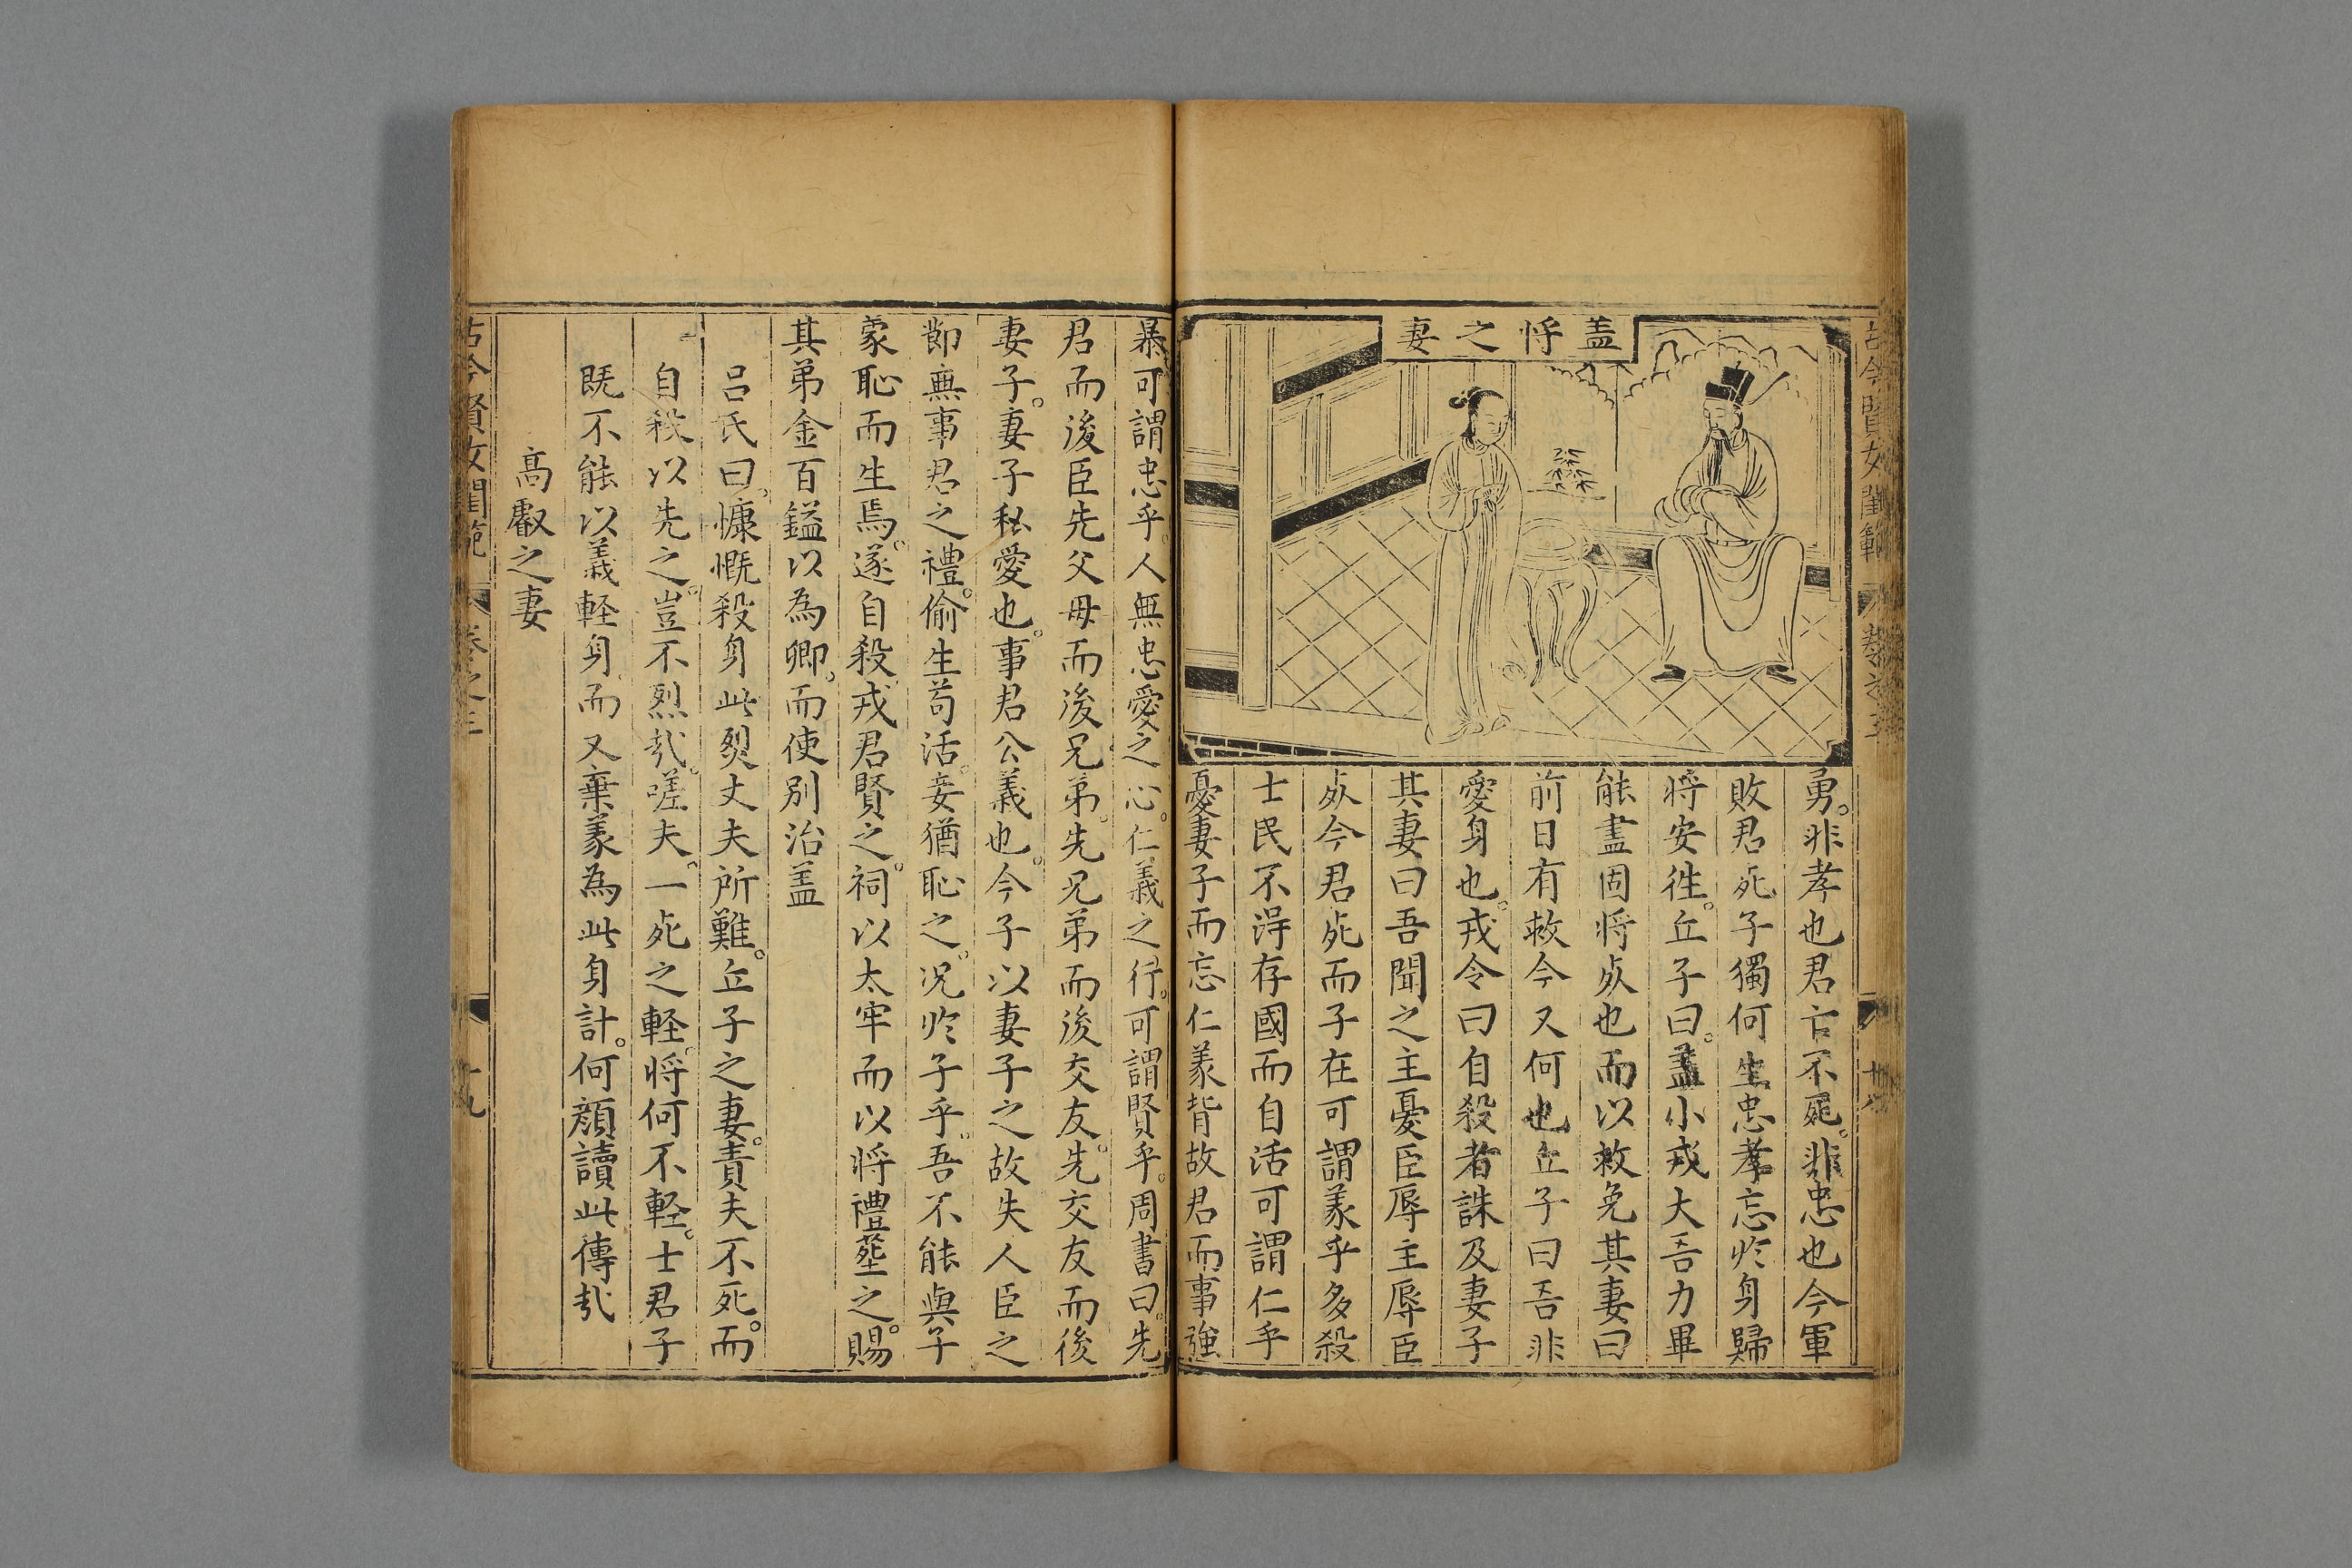 古今賢女閨範
卷之三
十八
盖将之妻
勇非孝也君亡不死非忠也今軍
敗君死子獨何生忠孝忘於身歸
将安徃丘子曰盖小戎大吾力畢
能盡固将死也而以救免其妻曰
前日有救今又何也丘子曰吾非
愛身也戎令曰自殺者誅及妻子
其妻曰吾聞之主憂臣辱主辱臣
死今君死而子在可謂義乎多殺
士民不淂存國而自活可謂仁乎
憂妻子而忘仁義背故君而事強
暴可謂忠乎人無忠愛之心仁義之行可謂賢乎周書曰先
君而後臣先父母而後兄弟先兄弟而後交友先交友而後
妻子妻子私愛也事君公義也今子以妻子之故失人臣之
節無事君之禮偷生苟活妾猶恥之况於子乎吾不能與子
蒙恥而生焉遂自殺戎君賢之祠以太牢而以将禮塟之賜
其弟金百鎰以為卿而使別治盖
呂氏曰慷慨殺身此烈丈夫所難丘子之妻責夫不死而
自殺以先之豈不烈哉嗟夫一死之軽将何不軽士君子
既不能以義軽身而又棄義為此身計何顔讀此傳哉
高叡之妻
古今賢女閨範
卷之三
十九